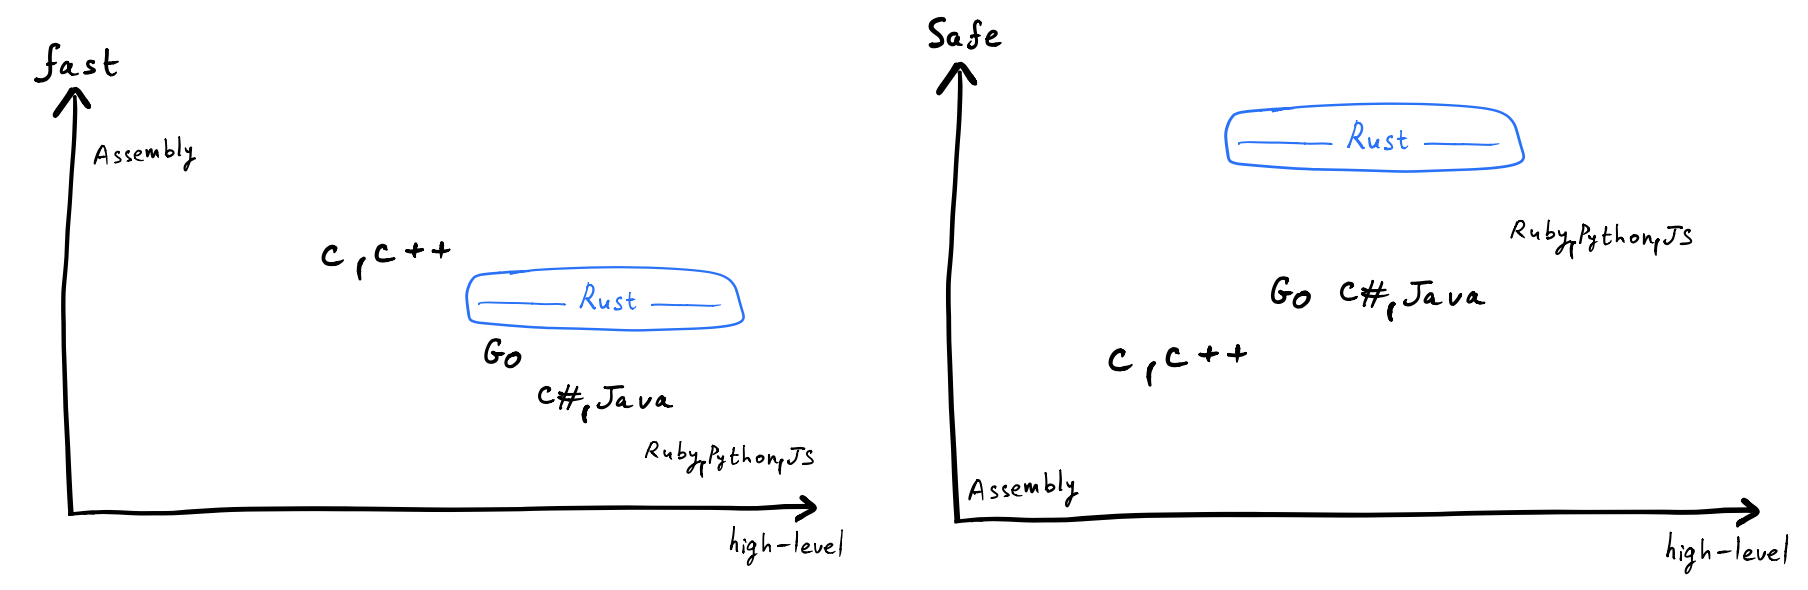 fast
Assembly
C, C++
Rust
Go
C#, Java
Ruby, Python, JS
high-level
Safe
Rust
Ruby, Python, JS
Go C#, Java
C, C++
Assembly
high-level